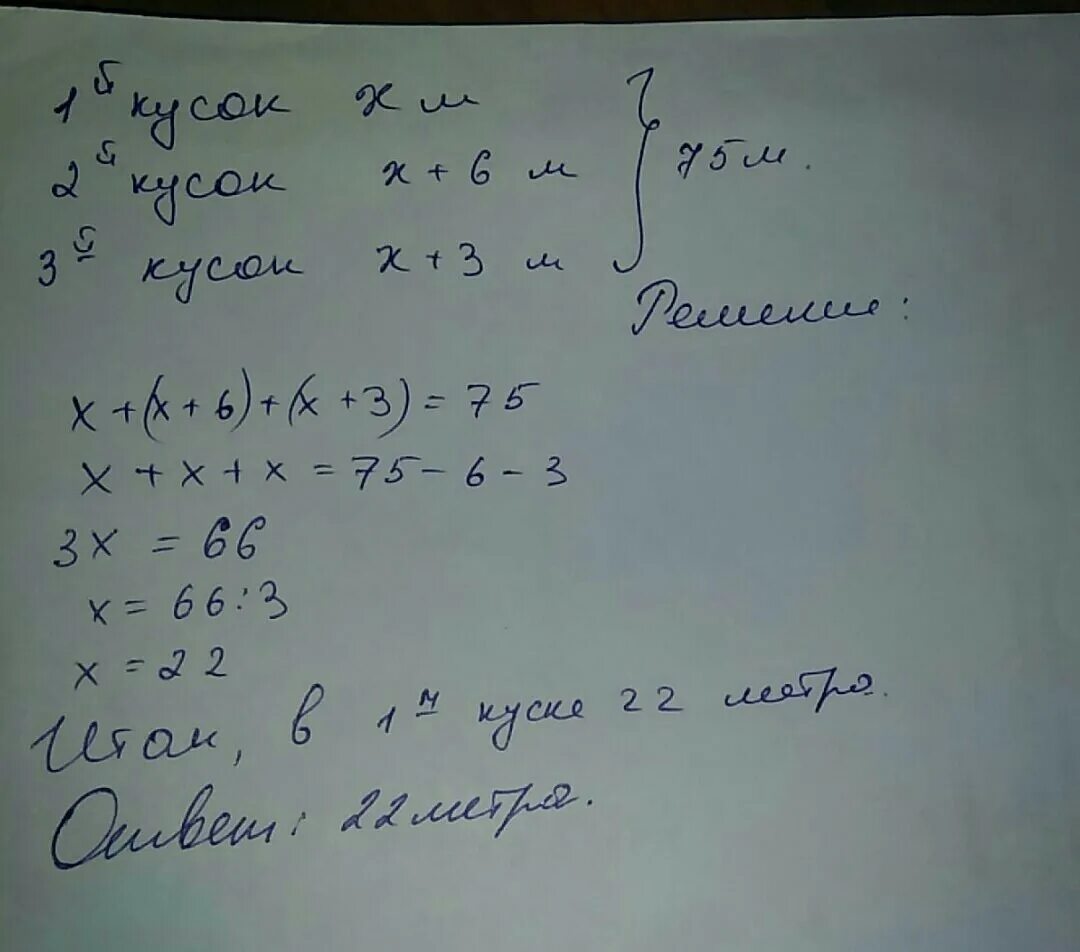 1й кусок х м
2й кусок х + 6 м
3й кусок х + 3 м
75 м.
Решение:
х + (х + 6) + (х + 3) = 75
х + х + х = 75 - 6 - 3
3х = 66
х = 66 : 3
х = 22
Итак, в 1м куске 22 метра.
Ответ: 22 метра.